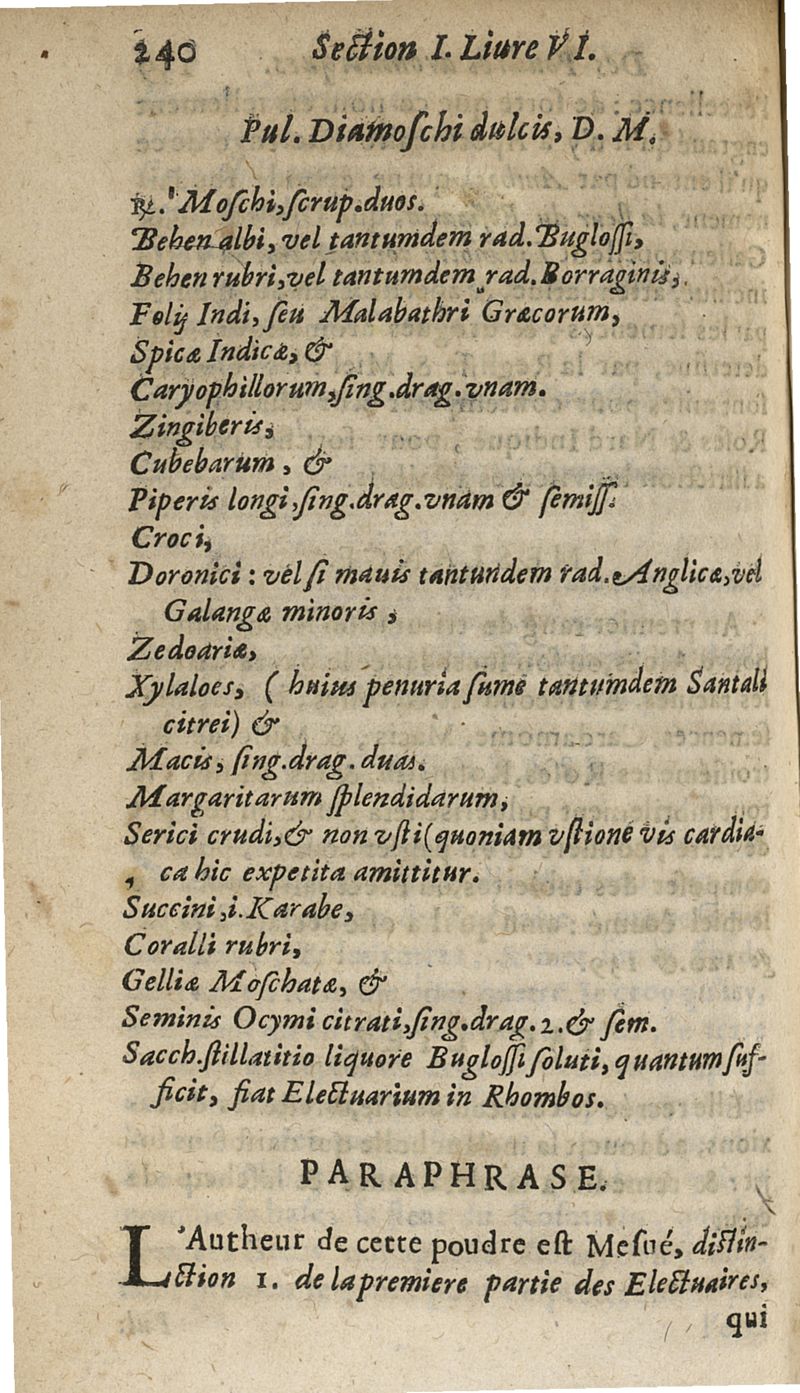 240 Section I. Liure VI.
Pul. Diamoſchi dulcis, D. M.
℞. Moſchi, ſcrup. duos.
Behen albi, vel tantumdem rad. Bugloſſi,
Behen rubri, vel tantumdem rad. Borraginis,
Folij Indi, ſeu Malabathri Græcorum,
Spicæ Indicæ, &
Caryophillorum, ſing. drag. vnam.
Zingiberis,
Cubebarum, &
Piperis longi, ſing. drag. vnam & ſemiſſ.
Croci,
Doronici : vel ſi mauis tantundem rad. Anglicæ, vel
Galangæ minoris,
Zedoariæ,
Xylaloes, ( huius penuria ſume tantumdem Santali
citrei) &
Macis, ſing. drag. duas.
Margaritarum ſplendidarum,
Serici crudi, & non vſti (quoniam vſtione vis cardia-
ca hic expetita amittitur.
Succini, i. Karabe,
Coralli rubri,
Gelliæ Moſchatæ, &
Seminis Ocymi citrati, ſing. drag. 2. & ſem.
Sacch. ſtillatitio liquore Bugloſſi ſoluti, quantum ſuf-
ficit, fiat Electuarium in Rhombos.
PARAPHRASE.
L'Autheur de cette poudre eſt Meſué, diſtin-
ction 1. de la premiere partie des Electuaires,
qui